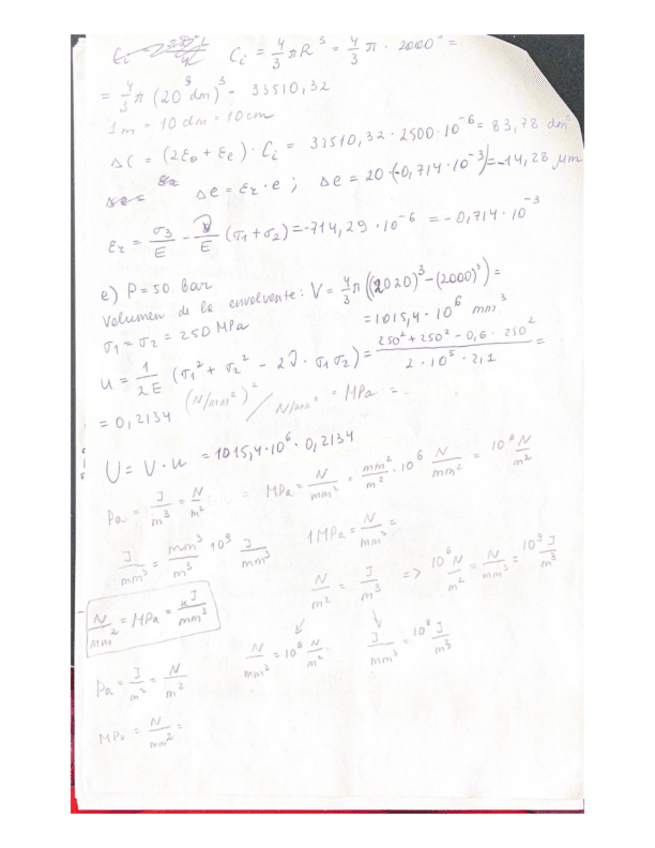 Ci = 4/3 πR³ = 4/3 π · 2000³ =
= 4/3 π (20 dm)³ = 33510,32
1m = 10 dm = 10cm
ΔC = (2εθ + εe) · Ci = 33510,32 · 2500 · 10⁻⁶ = 83,78 dm³
Δe = εr · e ; Δe = 20 · (-0,714 · 10⁻³) = -14,28 μm
εr = σ3/E - ν/E (σ1 + σ2) = -714,29 · 10⁻⁶ = -0,714 · 10⁻³
e) P = 50 bar
Volumen de la envolvente: V = 4/3 π ((2020)³ - (2000)³) =
= 1015,4 · 10⁶ mm³
σ1 = σ2 = 250 MPa
u = 1/2E (σ1² + σ2² - 2ν · σ1 σ2) = (250² + 250² - 0,6 · 250²)/(2 · 10⁵ · 2,1) =
= 0,2134 (N/mm²)² / N/mm² = MPa =
U = V · u = 1015,4 · 10⁶ · 0,2134
Pa = J/m³ = N/m² = MPa = N/mm² = mm²/m² · 10⁶ N/mm² =
J/mm³ = mm³/m³ 10⁹ J/mm³
1MPa = N/mm² =
N/m² = J/m³ => 10⁶ N/m² = N/mm² = 10⁹ J/m³
N/mm² = MPa = J/mm³
N/mm² = 10⁶ N/m²
J/mm³ = 10⁹ J/m³
Pa = J/m³ = N/m²
MPa = N/mm² =